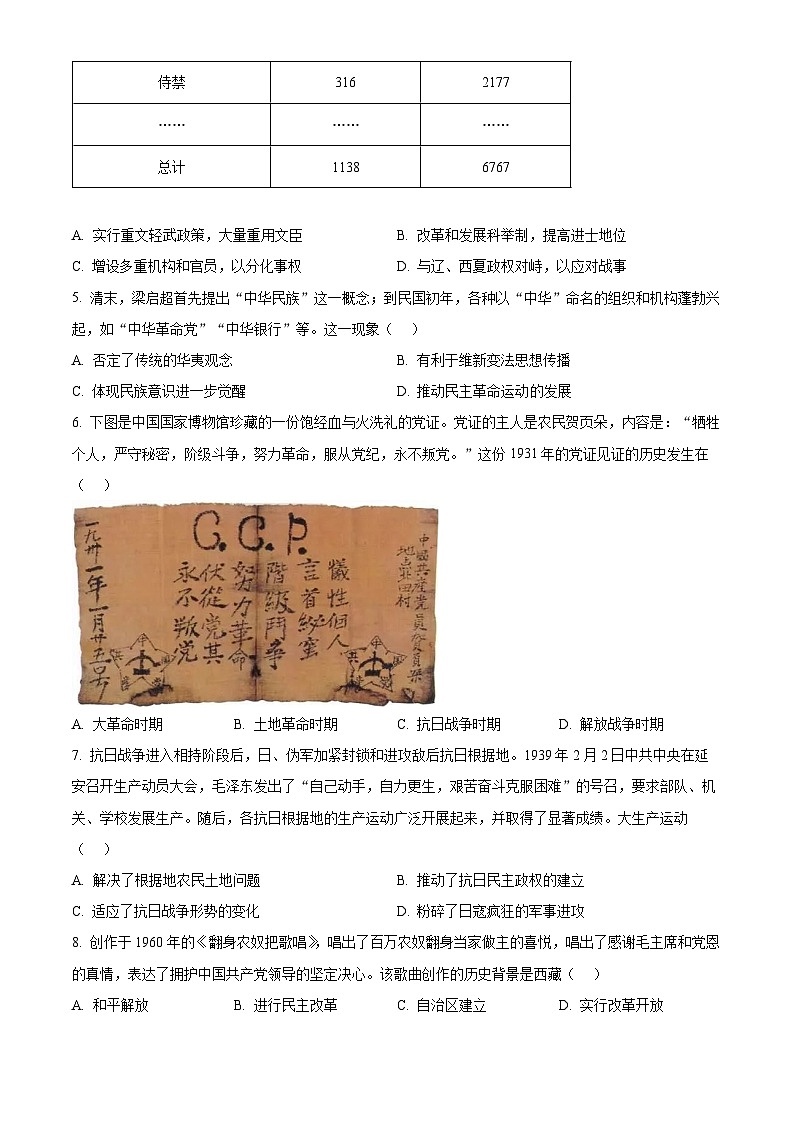 侍禁 316 2177
…… …… ……
总计 1138 6767
A. 实行重文轻武政策，大量重用文臣 B. 改革和发展科举制，提高进士地位
C. 增设多重机构和官员，以分化事权 D. 与辽、西夏政权对峙，以应对战事
5. 清末，梁启超首先提出“中华民族”这一概念；到民国初年，各种以“中华”命名的组织和机构蓬勃兴
起，如“中华革命党”“中华银行”等。这一现象（ ）
A. 否定了传统的华夷观念 B. 有利于维新变法思想传播
C. 体现民族意识进一步觉醒 D. 推动民主革命运动的发展
6. 下图是中国国家博物馆珍藏的一份饱经血与火洗礼的党证。党证的主人是农民贺页朵，内容是：“牺牲
个人，严守秘密，阶级斗争，努力革命，服从党纪，永不叛党。”这份 1931 年的党证见证的历史发生在
（ ）
C.C.P.
中國共産党員賀頁朵
地点北田村
犧牲個人
言首秘蜜
階級鬥争
努力革命
伏從党其
永不叛党
一九卅一年一月廿五日
A. 大革命时期 B. 土地革命时期 C. 抗日战争时期 D. 解放战争时期
7. 抗日战争进入相持阶段后，日、伪军加紧封锁和进攻敌后抗日根据地。1939 年 2 月 2 日中共中央在延
安召开生产动员大会，毛泽东发出了“自己动手，自力更生，艰苦奋斗克服困难”的号召，要求部队、机
关、学校发展生产。随后，各抗日根据地的生产运动广泛开展起来，并取得了显著成绩。大生产运动
（ ）
A. 解决了根据地农民土地问题 B. 推动了抗日民主政权的建立
C. 适应了抗日战争形势的变化 D. 粉碎了日寇疯狂的军事进攻
8. 创作于 1960 年的《翻身农奴把歌唱》，唱出了百万农奴翻身当家做主的喜悦，唱出了感谢毛主席和党恩
的真情，表达了拥护中国共产党领导的坚定决心。该歌曲创作的历史背景是西藏（ ）
A. 和平解放 B. 进行民主改革 C. 自治区建立 D. 实行改革开放